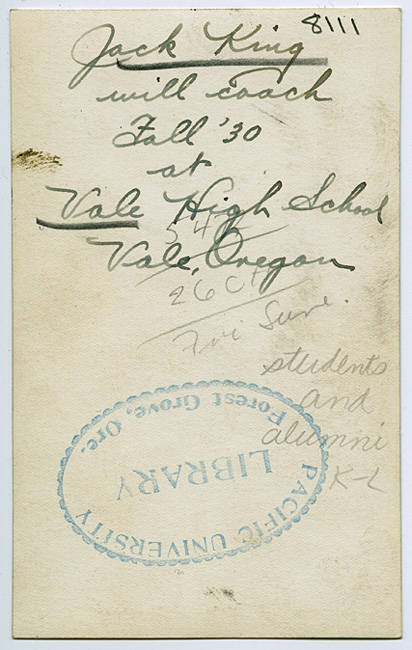 8111
Jack King
will coach
Fall '30
at
Vale High School
Vale, Oregon
students
and
alumni
K-L
PACIFIC UNIVERSITY
LIBRARY
Forest Grove, Ore.